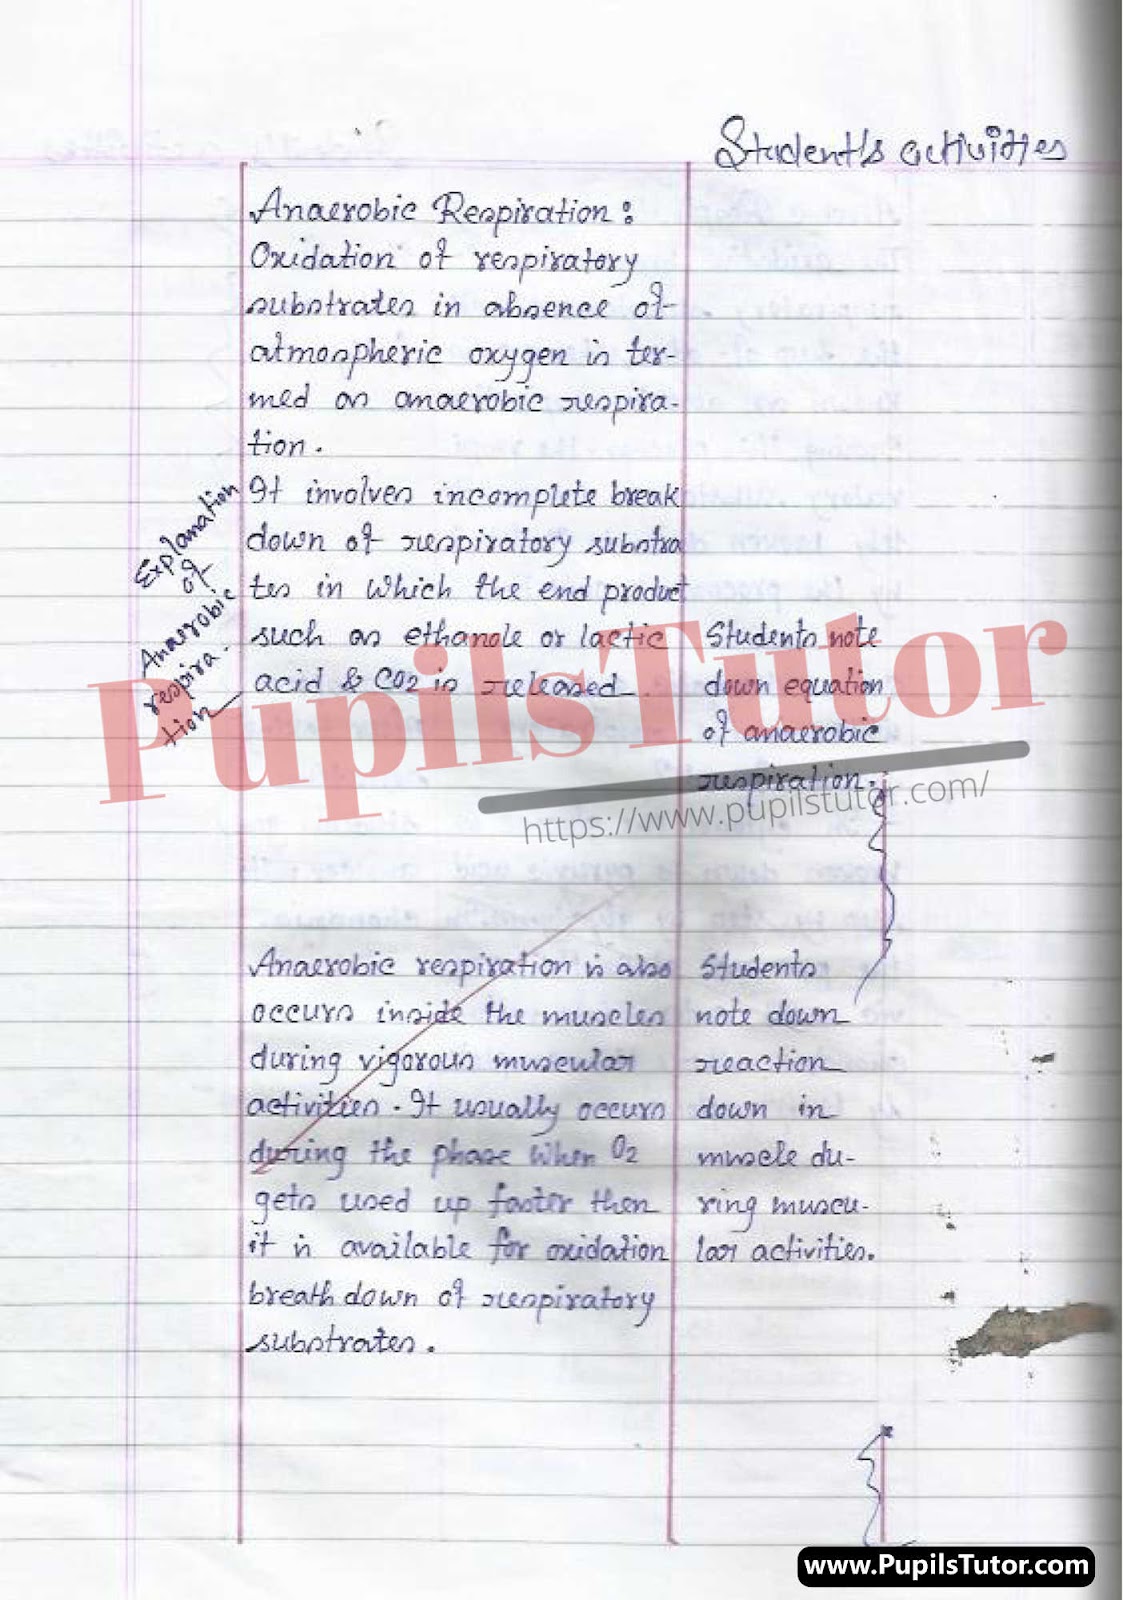 Student's activities
Anaerobic Respiration :
Oxidation of respiratory
substrates in absence of
atmospheric oxygen is ter-
med as anaerobic respira-
tion.
Explanation
of
Anaerobic
respira-
tion
It involves incomplete break
down of respiratory substra
tes in which the end product
such as ethanole or lactic
acid & CO2 is released.
Students note
down equation
of anaerobic
respiration.
PupilsTutor
https://www.pupilstutor.com/
Anaerobic respiration is also
occurs inside the muscles
during vigorous muscular
activities. It usually occurs
during the phase when O2
gets used up faster then
it is available for oxidation
breath down of respiratory
substrates.
Students
note down
reaction
down in
muscle du-
ring muscu-
lar activities.
www.PupilsTutor.com